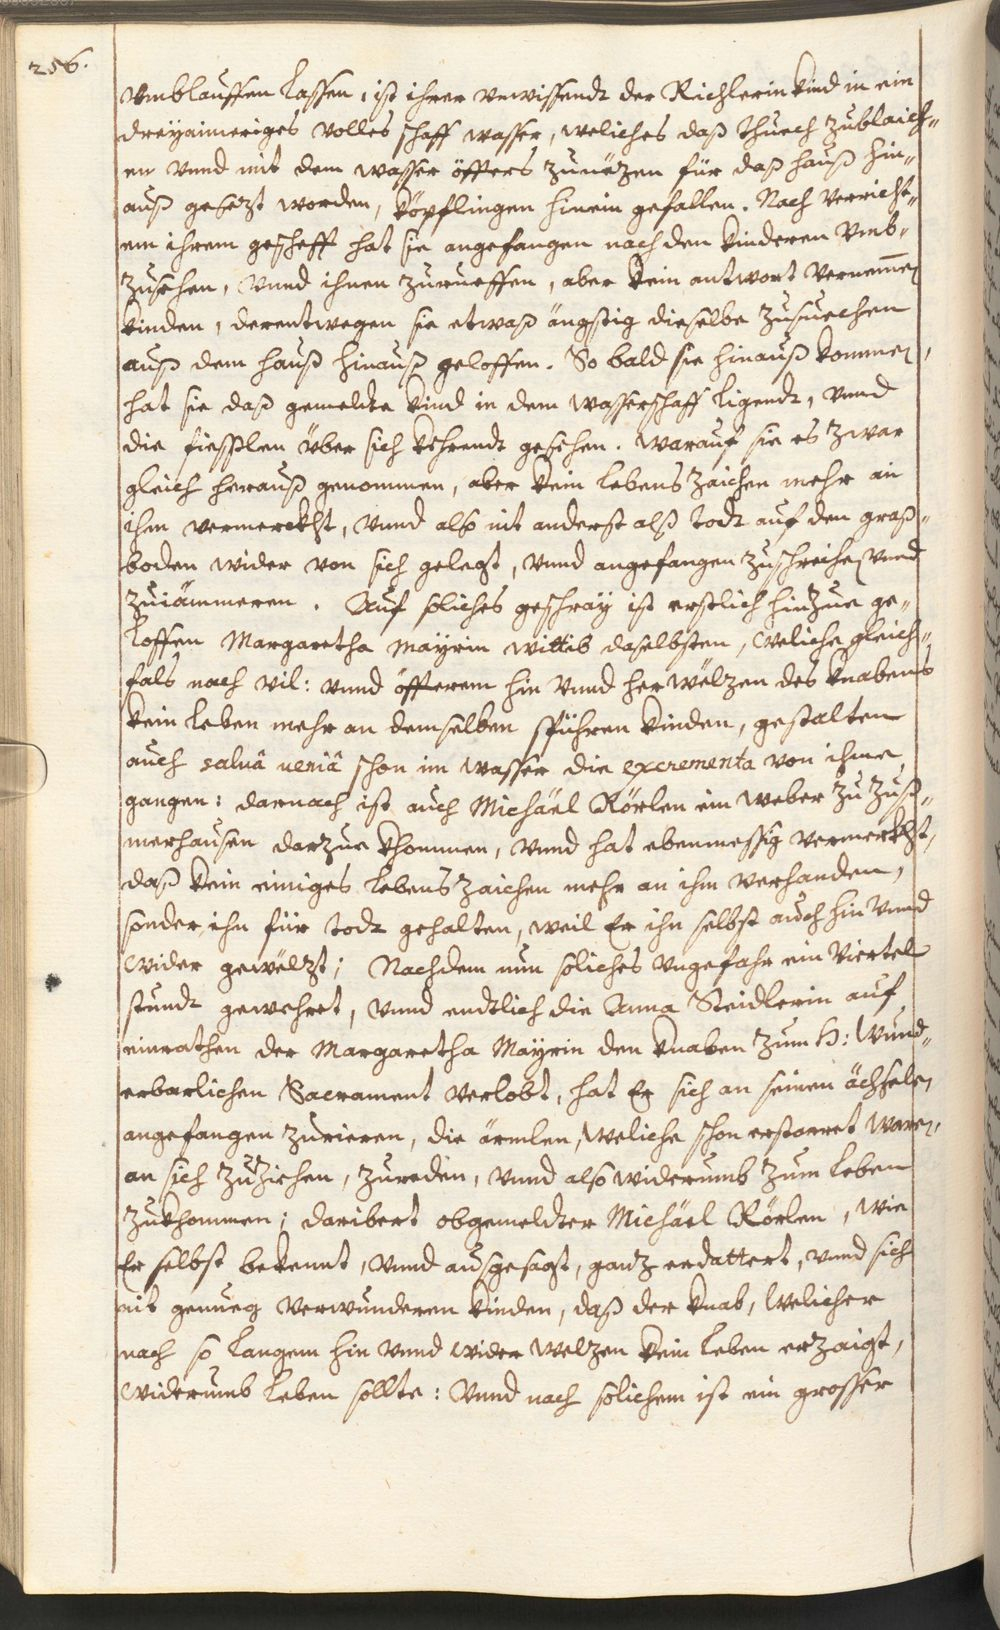 256.
Umblauffen lassen, ist ihrer unwissendt der Richlerin kind in ein
dreyaimeriges volles schaff wasser, weliches daß thuech zublaich-
en vnnd mit dem wasser öffters zunëzen für daß hauß hin-
auß gesezt worden, köpflingen hinein gefallen. Nach verricht-
em ihrem gescheff hat sie angefangen nach den kinderen vmb-
zusehen, vnnd ihnen zurueffen, aber kein antwort vernemmen
kinden, derentwegen sie etwaß ängstig dieselbe zusuechen
auß dem hauß hinauß geloffen. So bald sie hinauß kommen,
hat sie daß gemeldte kind in dem wasserschaff ligendt, vnnd
die fiesslen über sich kehrendt gesehen. Warauf sie es zwar
gleich herauß genommen, aber kein lebens zaichen mehr an
ihm vermerckht, vnnd also nit anderst alß todt auf den graß-
boden wider von sich gelegt, vnnd angefangen zuschreihen vnnd
zuiämmeren. Auf soliches geschray ist erstlich hinzue ge-
loffen Margaretha Mayrin wittib daselbsten, weliche gleich-
fals nach vil: vnnd öfferem hin vnnd her wëlzen des knabens
kein leben mehr an demselben spühren kinden, gestalten
auch salvâ veniâ schon im wasser die excrementa von ihme
gangen: darnach ist auch Michäel Rörlen ein weber zu Zuß-
merhausen darzue khommen, vnnd hat ebenmessig vermerckht,
daß kein einiges lebens zaichen mehr an ihm verhanden,
sonder ihn für todt gehalten, weil Er ihn selbst auch hin vnnd
wider gewëlzt; Nachdem nun soliches vngefahr ein viertel
stundt gewehret, vnnd endtlich die Anna Steidlerin auf
einrathen der Margaretha Mayrin den knaben zum H: Wund-
erbarlichen Sacrament verlobt, hat Er sich an seinen ächselen
angefangen zurieren, die ärmlen, weliche schon erstarret waren,
an sich zuziehen, zureden, vnnd also widerumb zum leben
zukhommen; daribert obgemeldter Michäel Rörlen, wie
Er selbst bekennt, vnnd ausgesagt, ganz erdattert, vnnd sich
nit genueg verwunderen kinden, daß der knab, welicher
nach so langem hin vnnd wider welzen kein leben erzaigt,
widerumb leben sollte: Vnnd nach solichem ist ein grosser